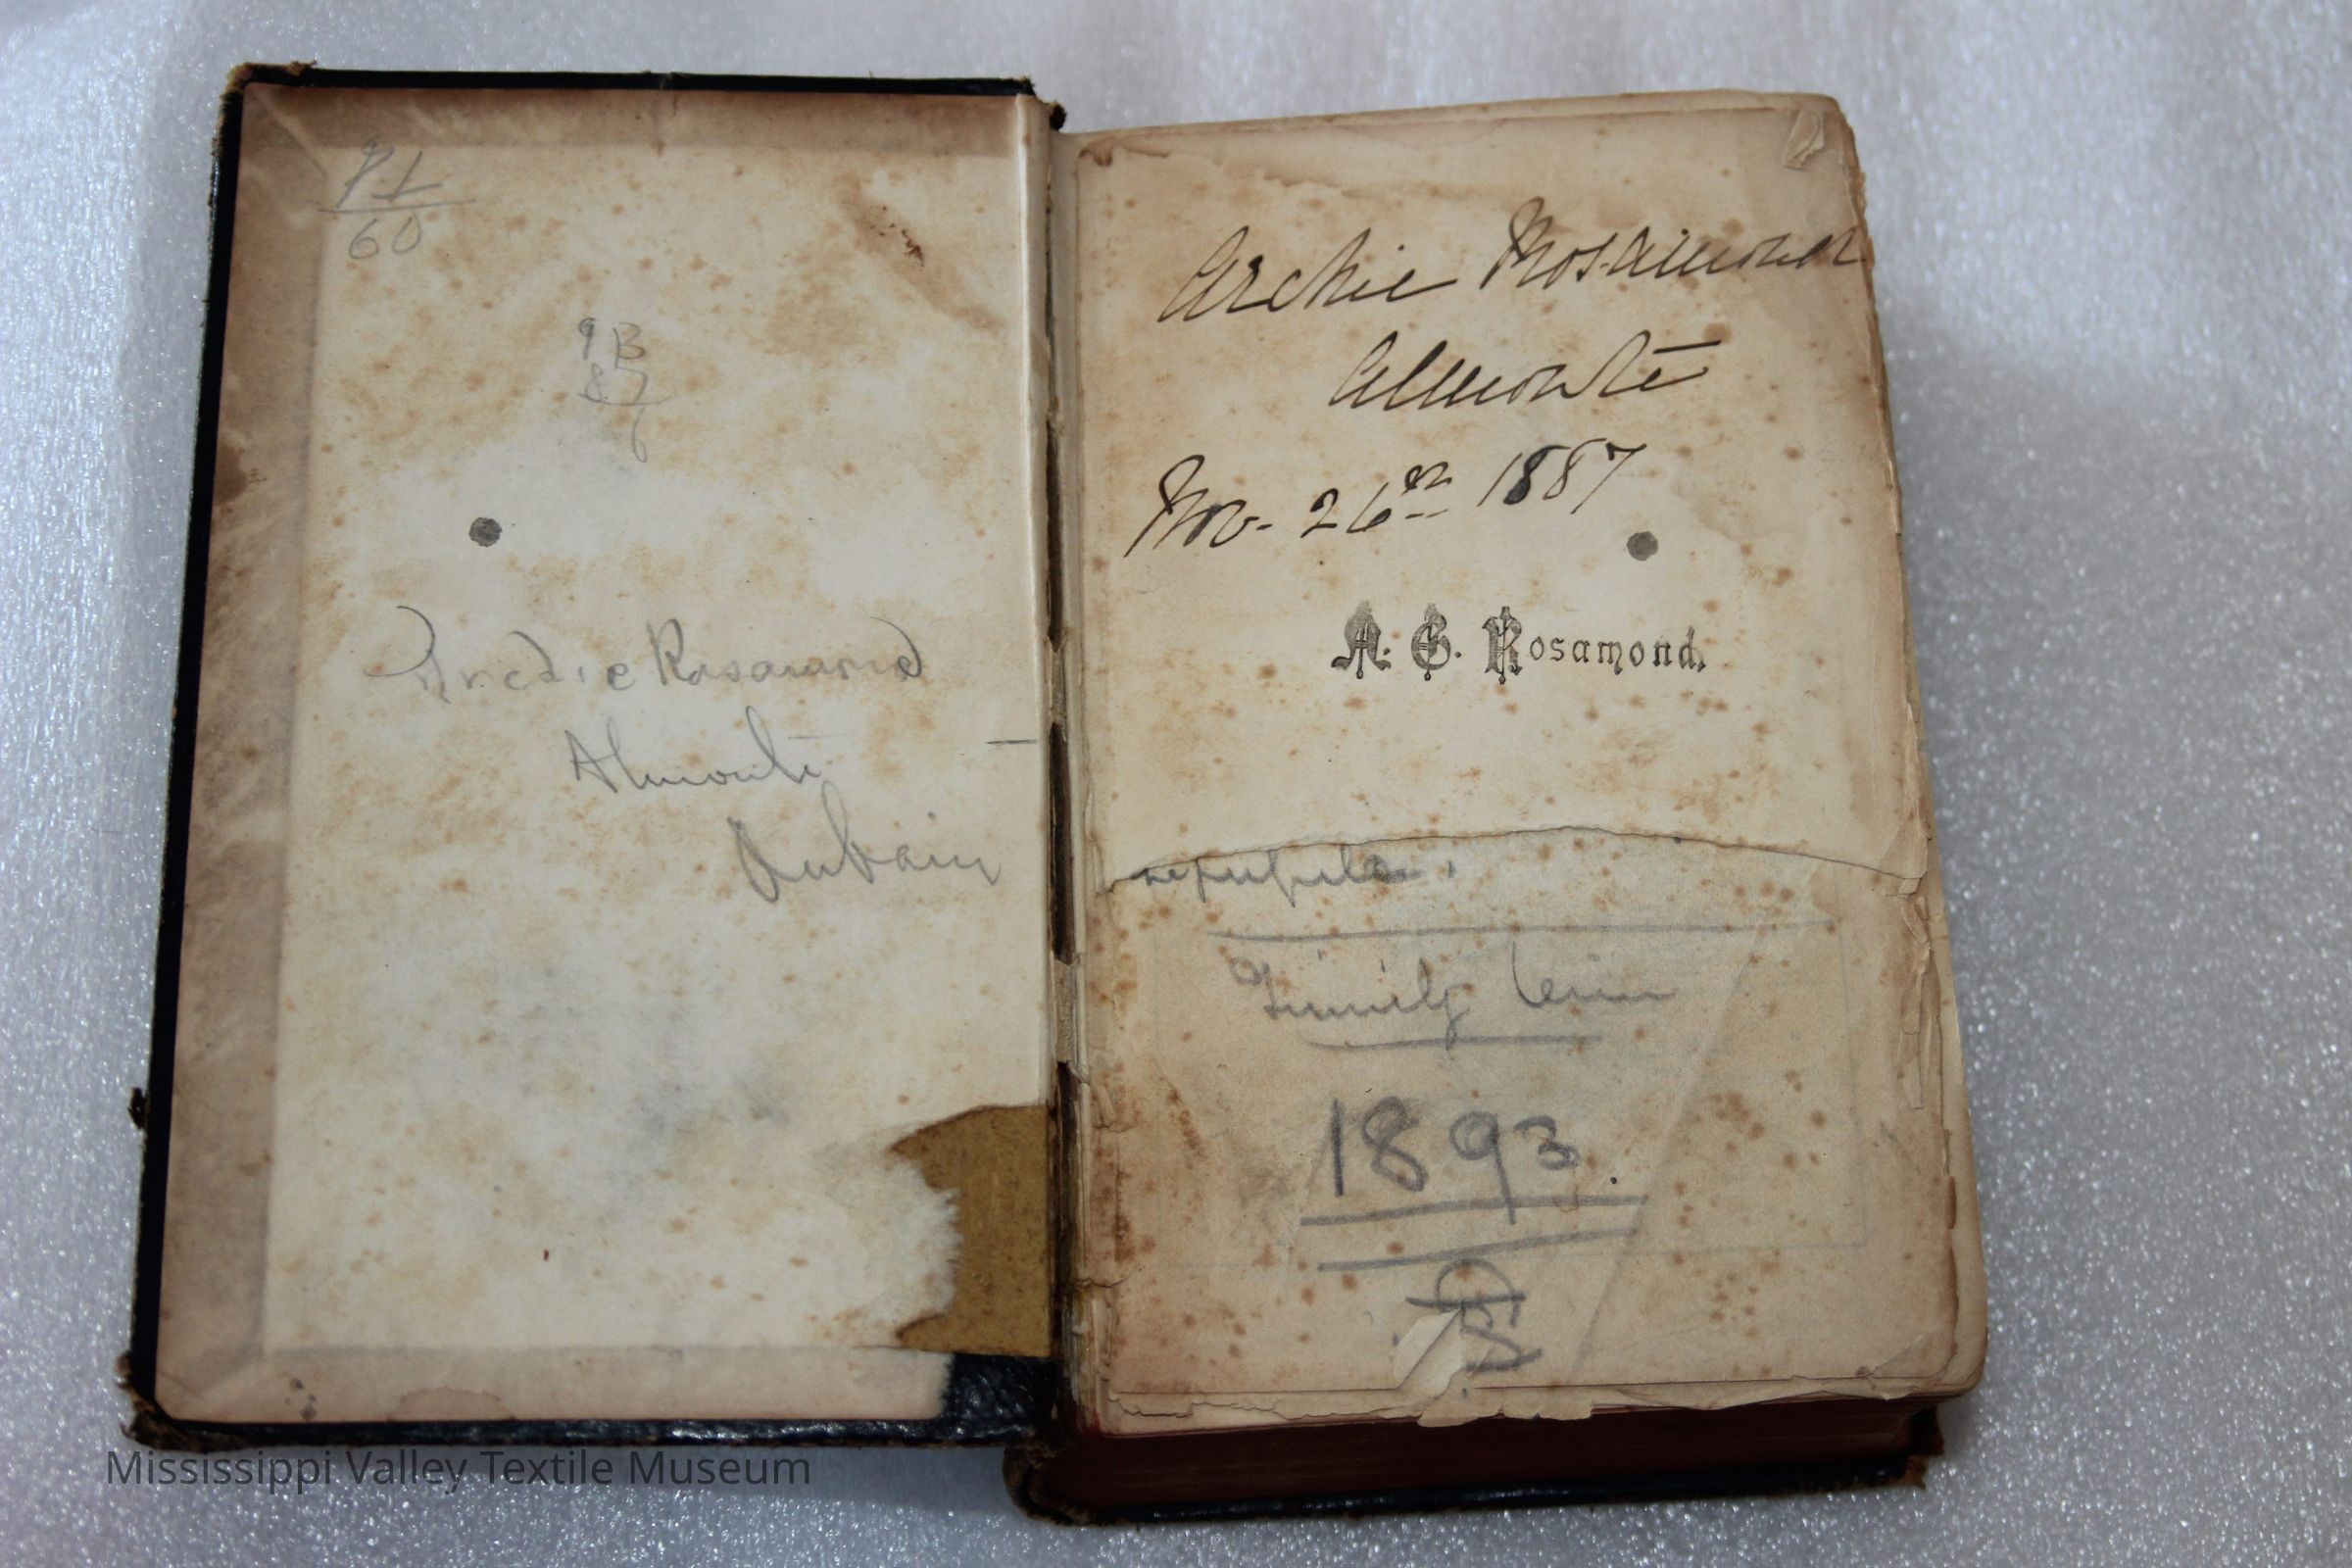 71
60
93
87
6
Fredie Rosamond
Almonte
Archie Rosamond
Almonte
Nov. 26th 1887
A. G. Rosamond.
Trinity Term
1893.
Mississippi Valley Textile Museum